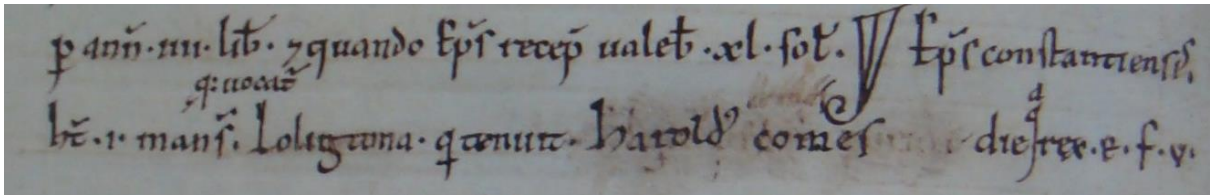 p ann̄·iiii·lib̄·⁊ quando Ep̄s recep̄ ualeb̄·xl·sol̄· Ep̄s constantiensis,
q̄ uocat̄
ht̄·i·mans̄·Lolugtona·q̄ tenuit·Harold᾽ comes die q̄ rex·e·f·v·